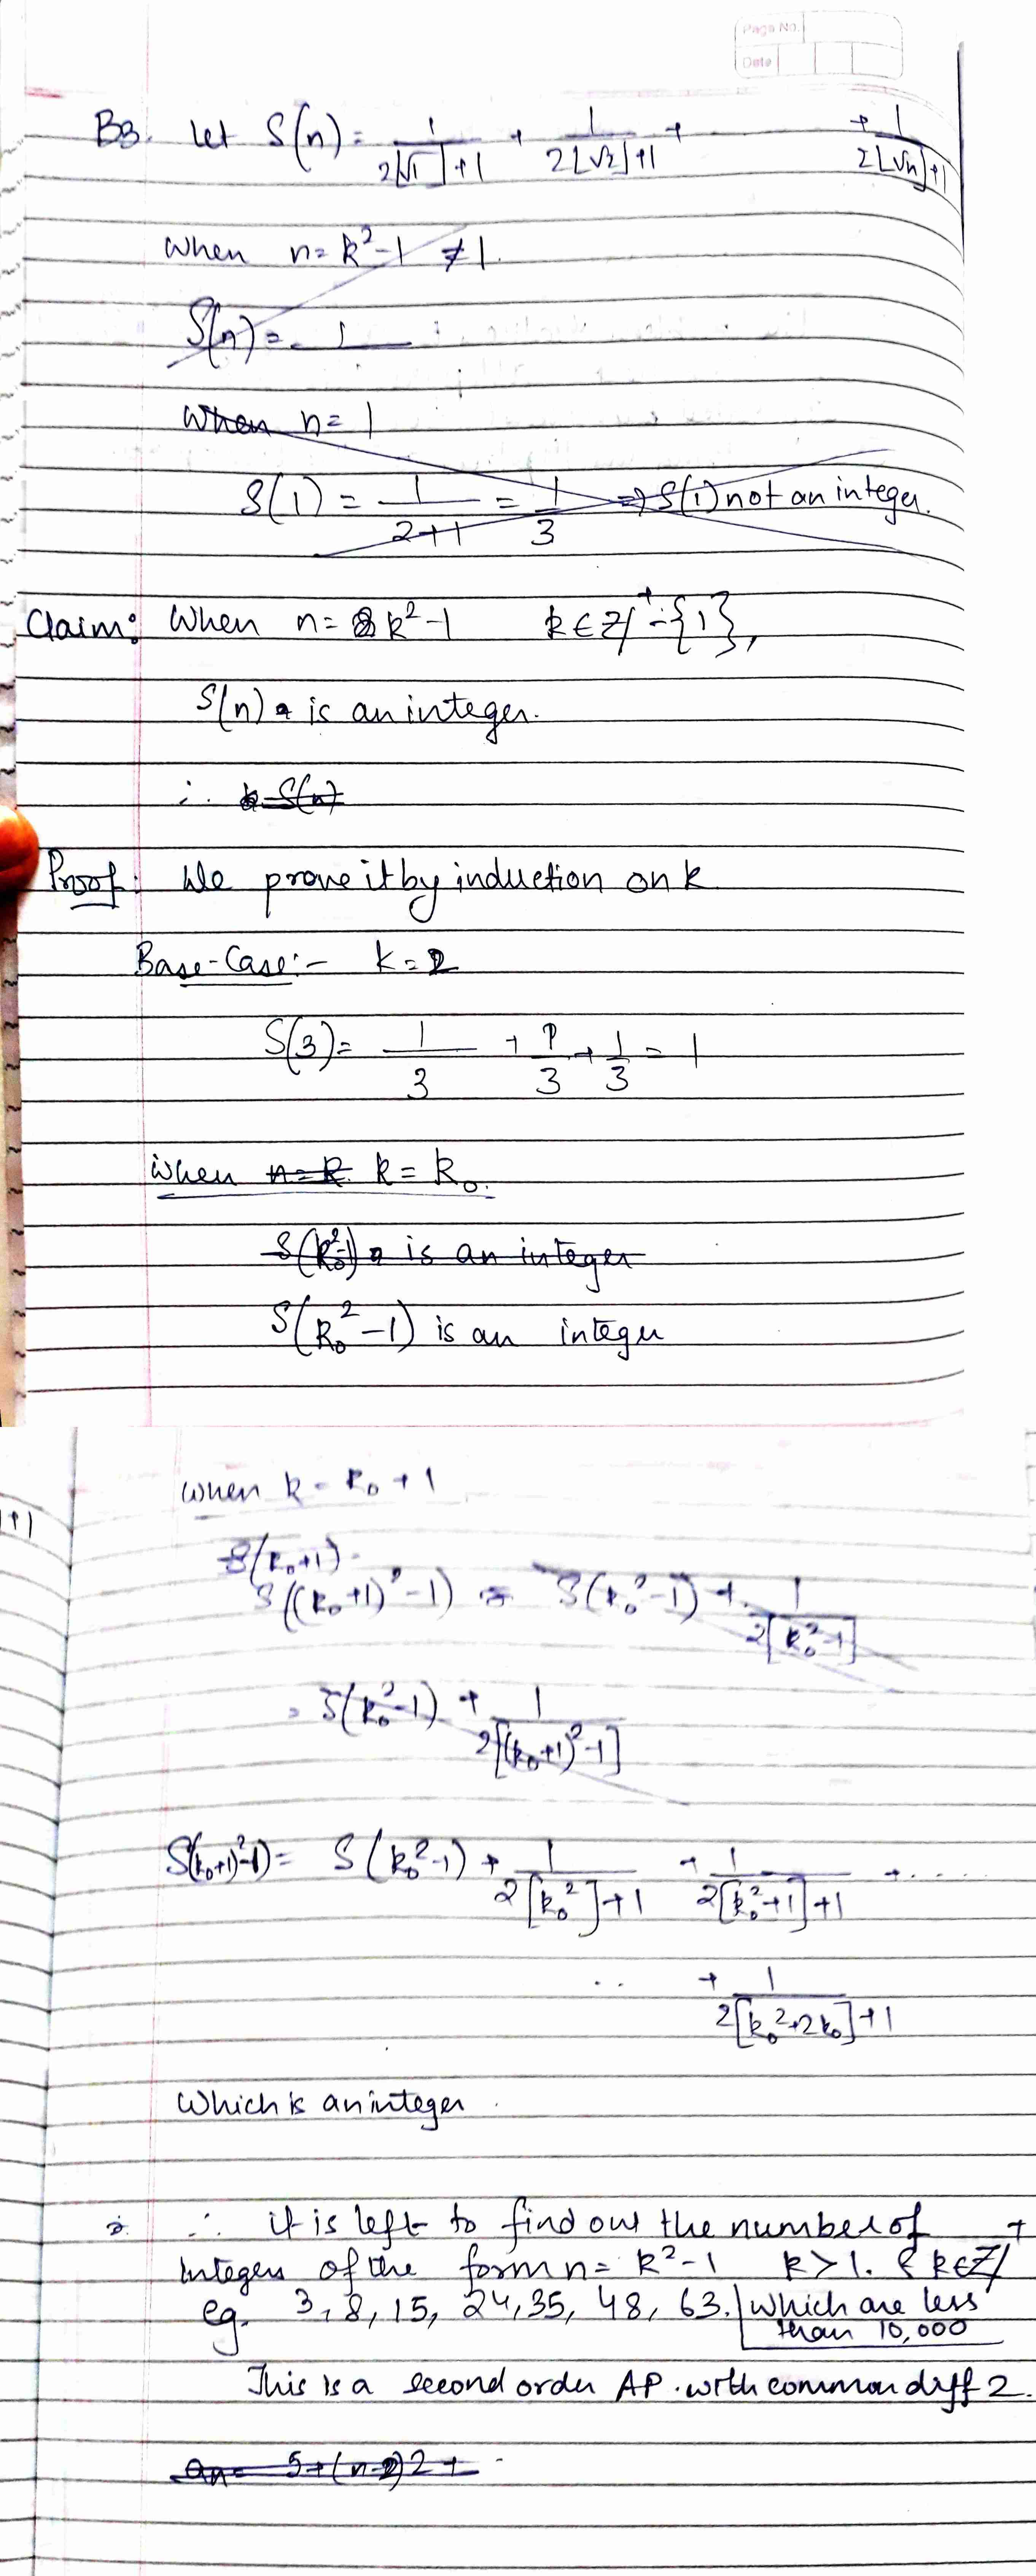 Page No.
Date
B3. Let S(n) = 1/(2⌊√1⌋+1) + 1/(2⌊√2⌋+1) + + 1/(2⌊√n⌋+1)
When n = k²-1 ≠ 1.
S(n) = 1
When n = 1
S(1) = 1/(2+1) = 1/3 ⇒ S(1) not an integer.
Claim: When n = k²-1 k ∈ Z⁺ - {1},
S(n) is an integer.
∴ S(n)
Proof: We prove it by induction on k
Base-Case:- k = 2
S(3) = 1/3 + 1/3 + 1/3 = 1
when n = k k = k₀.
S(k₀²-1) is an integer
S(k₀²-1) is an integer
+1
when k = k₀ + 1
S(k₀+1)
S((k₀+1)²-1) = S(k₀²-1) + 1/(2[k₀²-1]
= S(k₀²-1) + 1/(2[(k₀+1)²-1]
S((k₀+1)²-1) = S(k₀²-1) + 1/(2[k₀²]+1) + 1/(2[k₀²+1]+1) + ......
.. + 1/(2[k₀²+2k₀]+1)
Which is an integer.
∴ it is left to find out the number of
integers of the form n = k²-1 k > 1. & k∈Z⁺
eg. 3, 8, 15, 24, 35, 48, 63. which are less
than 10,000
This is a second order AP. with common diff 2.
an = 5+(n-2)2 +